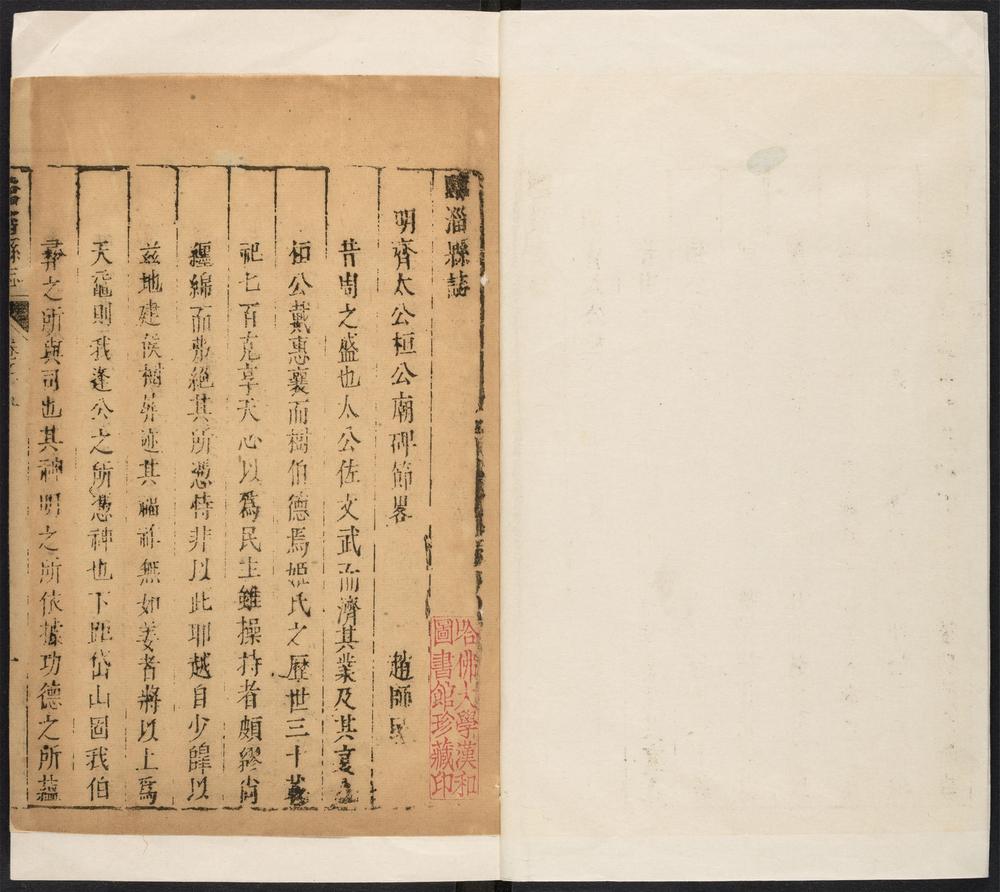 臨淄縣誌
明齊太公桓公廟碑節畧
趙師民
昔周之盛也太公佐文武而濟其業及其衰也
桓公戴惠襄而樹伯德焉姬氏之歷世三十載
祀七百克享天心以爲民主雖操持者頗繆尚
纏綿而弗絕其所憑恃非以此耶越自少皥以
兹地建侯樹迹其福祚無如姜者將以上爲
天黿則我逢公之所憑神也下距岱山固我伯
彞之所與司也其神明之所依據功德之所蘊
哈佛大學漢和
圖書館珍藏印